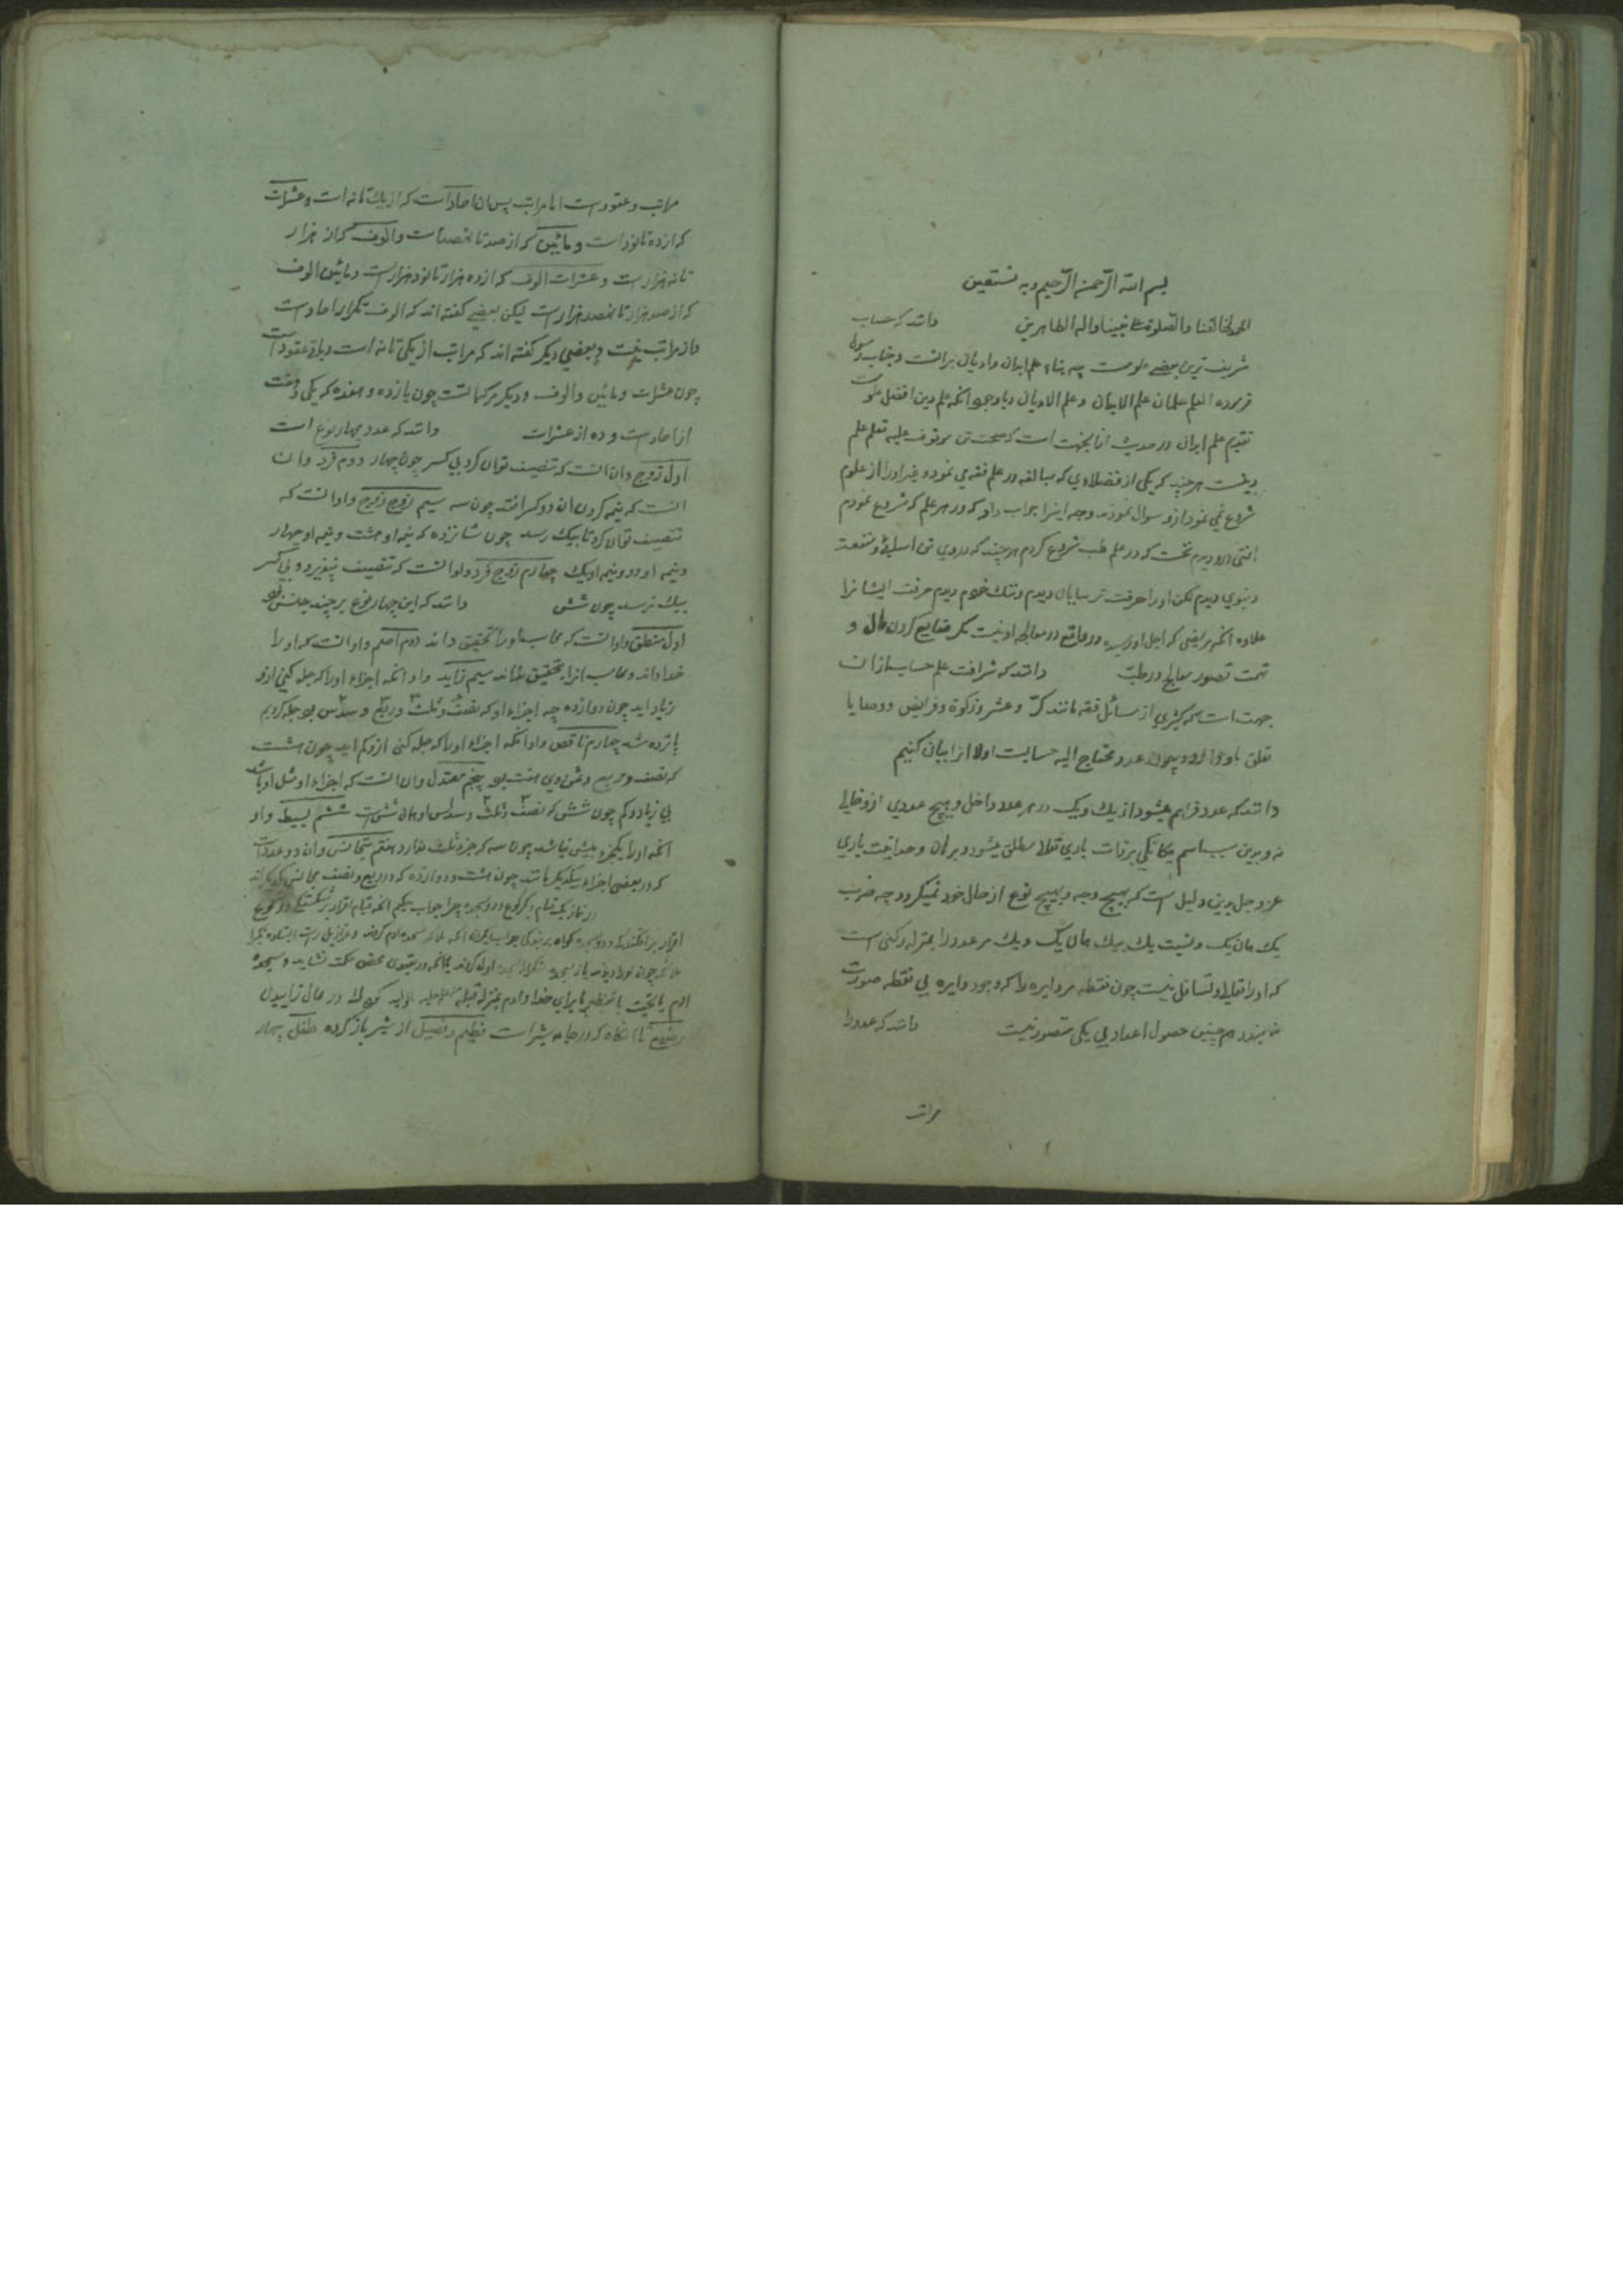 بسم الله الرحمن الرحیم وبه نستعین
الحمد لخالقنا والصلوة علی نبینا واله الطاهرین دانند که حساب
شریف ترین بعضی علومست چه بناء علم ابدان وادیان برانست وجناب رسول
فرموده العلم علمان علم الابدان وعلم الادیان وباوجود انکه علم دین افضل علوم است
تقدیم علم ابدان در حدیث ازینجهت است که صحت تن موقوف علیه تعلم علم
دینست هر چند که یکی از فضلاء که مبالغه در علم فقه می نمود و غیر اورا از علوم
شروع نمی نمود ازو سوال نمودند وجه اینرا جواب داد که در هر علم که شروع نمودم
افتی درو دیدم نخست که در علم طب شروع کردم هر چند که در وی تن اسانی و منفعت
دنیوی دیدم لکن اورا حرفت ترسایان دیدم و ننگ خودم دیدم حرفت ایشانرا
علاوه انکه مریضی که اجل او رسیده در واقع در معالجه او نیست مگر ضایع کردن مال و
تهمت تصور معالج در طب دانند که شرافت علم حساب ازان
جهت است که کثیری از مسائل فقه مانند کر و عشر و زکوة و فرایض و وصایا
تعلق باو دارد و چون عدد محتاج الیه حسابست اولا انرا بیان کنیم
دانند که عدد فراهم میشود از یک و یک در هر عدد داخل و هیچ عددی ازو خالی
نه و بدین سبب اسم یگانگی بر ذات باری تعالا مطلق میشود و برهان وحدانیت باری
عز وجل بدین دلیل است که بهیچ وجه و بهیچ نوع از حال خود نمیگردد چه ضرب
یک همان یک و نسبت یک بیک همان یک و یک هر عدد را بمنزله رکنی است
که اورا تغایر و تساقل نیست چون نقطه مر دایره را که وجود دایره بی نقطه صورت
نه بندد همچنین حصول اعداد بی یکی متصور نیست دانند که عدد را
مراتب
مراتب و عقودست اما مراتب پس همان احاد است که از یک تا نه است و عشرات
که از ده تا نود است و مائین که از صد تا نهصد است والوف که از هزار
تا نه هزارست و عشرات الوف که از ده هزار تا نود هزارست و مائین الوف
که از صد هزار تا نهصد هزارست لیکن بعضی گفته اند که الوف تکرار احادست
و از مراتب نیست و بعضی دیگر گفته اند که مراتب از یکی تا نه است و باقی عقود است
چون عشرات و مائین والوف و دیگر مرکباتست چون یازده و هفده که یکی و هفت
از احادست و ده از عشرات دانند که عدد چهار نوع است
اول زوج و ان انست که تنصیف توان کرد بی کسر چون چهار دوم فرد و ان
انست که نیمه کردن ان دو کسر افتد چون سه سیم زوج زوج و او انست که
تنصیف توان کرد تا بیک رسد چون شانزده که نیمه او هشت و نیمه او چهار
و نیمه او دو و نیمه او یک چهارم زوج فرد و او انست که تنصیف پذیرد و بی کسر
بیک نرسد چون شش دانند که این چهار نوع بر چند جنس بود
اول منطق و او انست که محاسب اورا تحقیق داند دوم اصم و او انست که اورا
خدا داند و محاسب انرا بتحقیق نداند سیم زاید و او انکه اجزاء اورا که جمله کنی ازو
زیاد اید چون دوازده چه اجزاء او که نصف و ثلث و ربع و سدس بود جمله کردیم
پانزده شد چهارم ناقص و او انکه اجزاء اورا که جمله کنی ازو کم اید چون هشت
که نصف و ربع و ثمن وی هفت بود پنجم معتدل و ان انست که اجزاء او مثل او باشد
بی زیاد و کم چون شش که نصف و ثلث و سدس او همان شش است ششم بسیط و او
انکه اورا یکجزو بیش نباشد چون سه که جز ثلث ندارد هفتم متجانس و ان دو عدد است
که در بعضی اجزاء بیکدیگر مانند چون هشت و دوازده که در ربع و نصف
در نماز یک قیام و یک رکوع و دو سجده چرا جواب بگویم انکه قیام اقرار